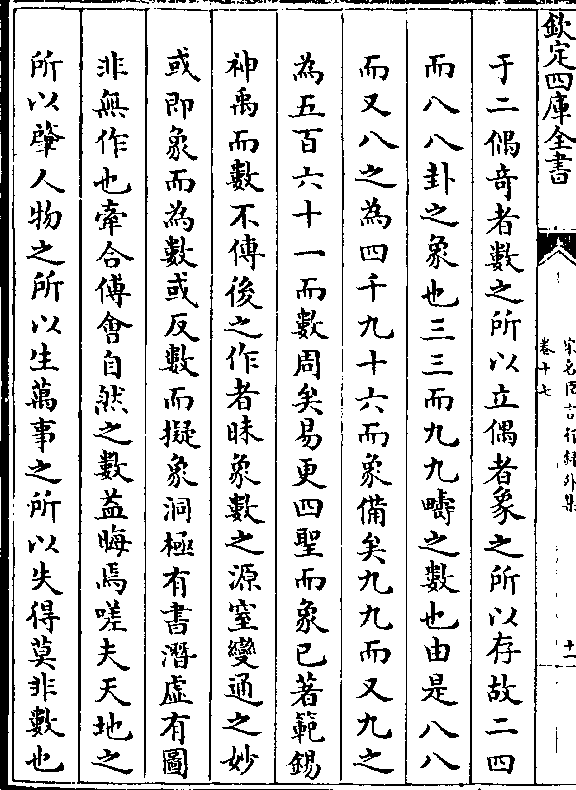 欽定四庫全書
宋名臣言行録外集
卷十七
十一
于二偶奇者數之所以立偶者象之所以存故二四
而八八卦之象也三三而九九疇之數也由是八八
而又八之為四千九十六而象備矣九九而又九之
為五百六十一而數周矣易更四聖而象已著範錫
神禹而數不傳後之作者昧象數之源窒變通之妙
或即象而為數或反數而擬象洞極有書潛虛有圖
非無作也牽合傅會自然之數益晦焉嗟夫天地之
所以肇人物之所以生萬事之所以失得莫非數也